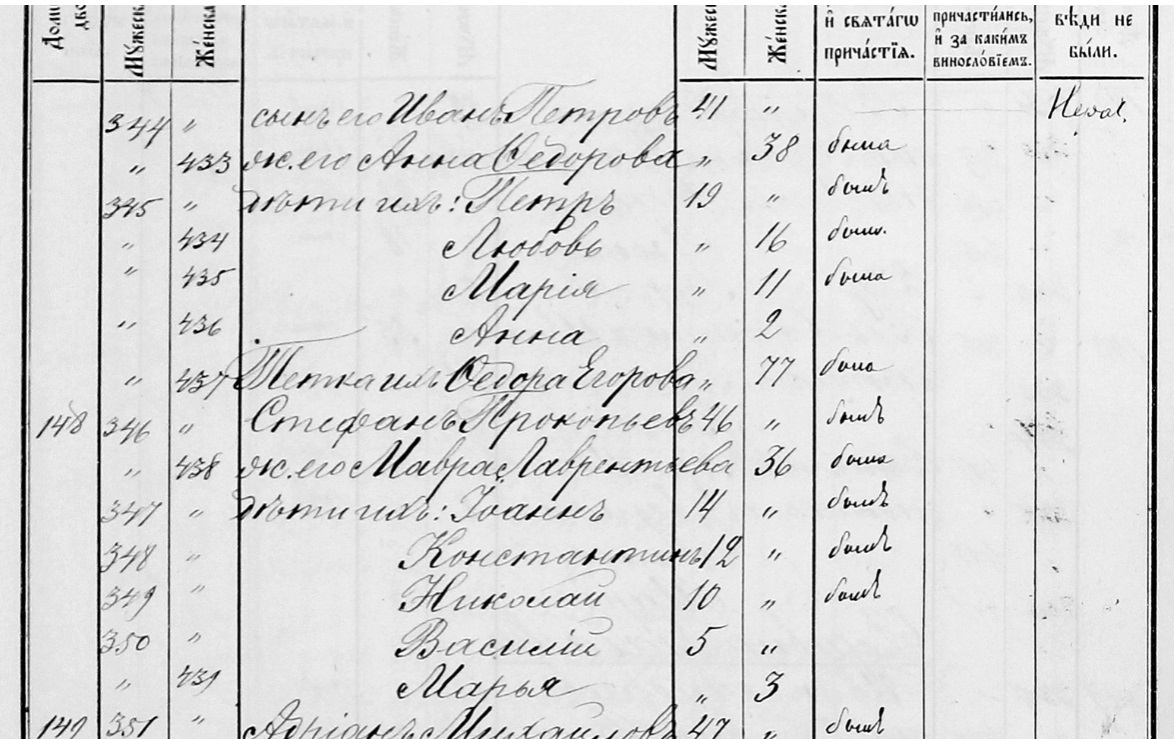 Доми двор
Мꙋ́жеска
Же́нска
Мꙋ́жеск
Же́нск
и҆ свѧта́гѡ прича́стїѧ.
причасти́лись, и҆ за каки́мъ виносло́вїемъ.
вѣ́ди не бы́ли.
344 " сынъ его Иванъ Петровъ 41 "
" 433 ж. его Анна Ѳедорова " 38 была
345 " дѣти ихъ: Петръ 19 " былъ
" 434 Любовь " 16 была
" 435 Марія " 11 была
" 436 Анна " 2
" 437 Тетка ихъ Ѳедора Егорова " 77 была
148 346 " Стефанъ Прокопьевъ 46 " былъ
" 438 ж. его Мавра Лаврентьева 36 была
347 " дѣти ихъ: Іоаннъ 14 " былъ
348 " Константинъ 12 " былъ
349 " Николай 10 " былъ
350 " Василій 5 "
" 439 Марья " 3
149 351 " Адріанъ Михайловъ 47 " былъ